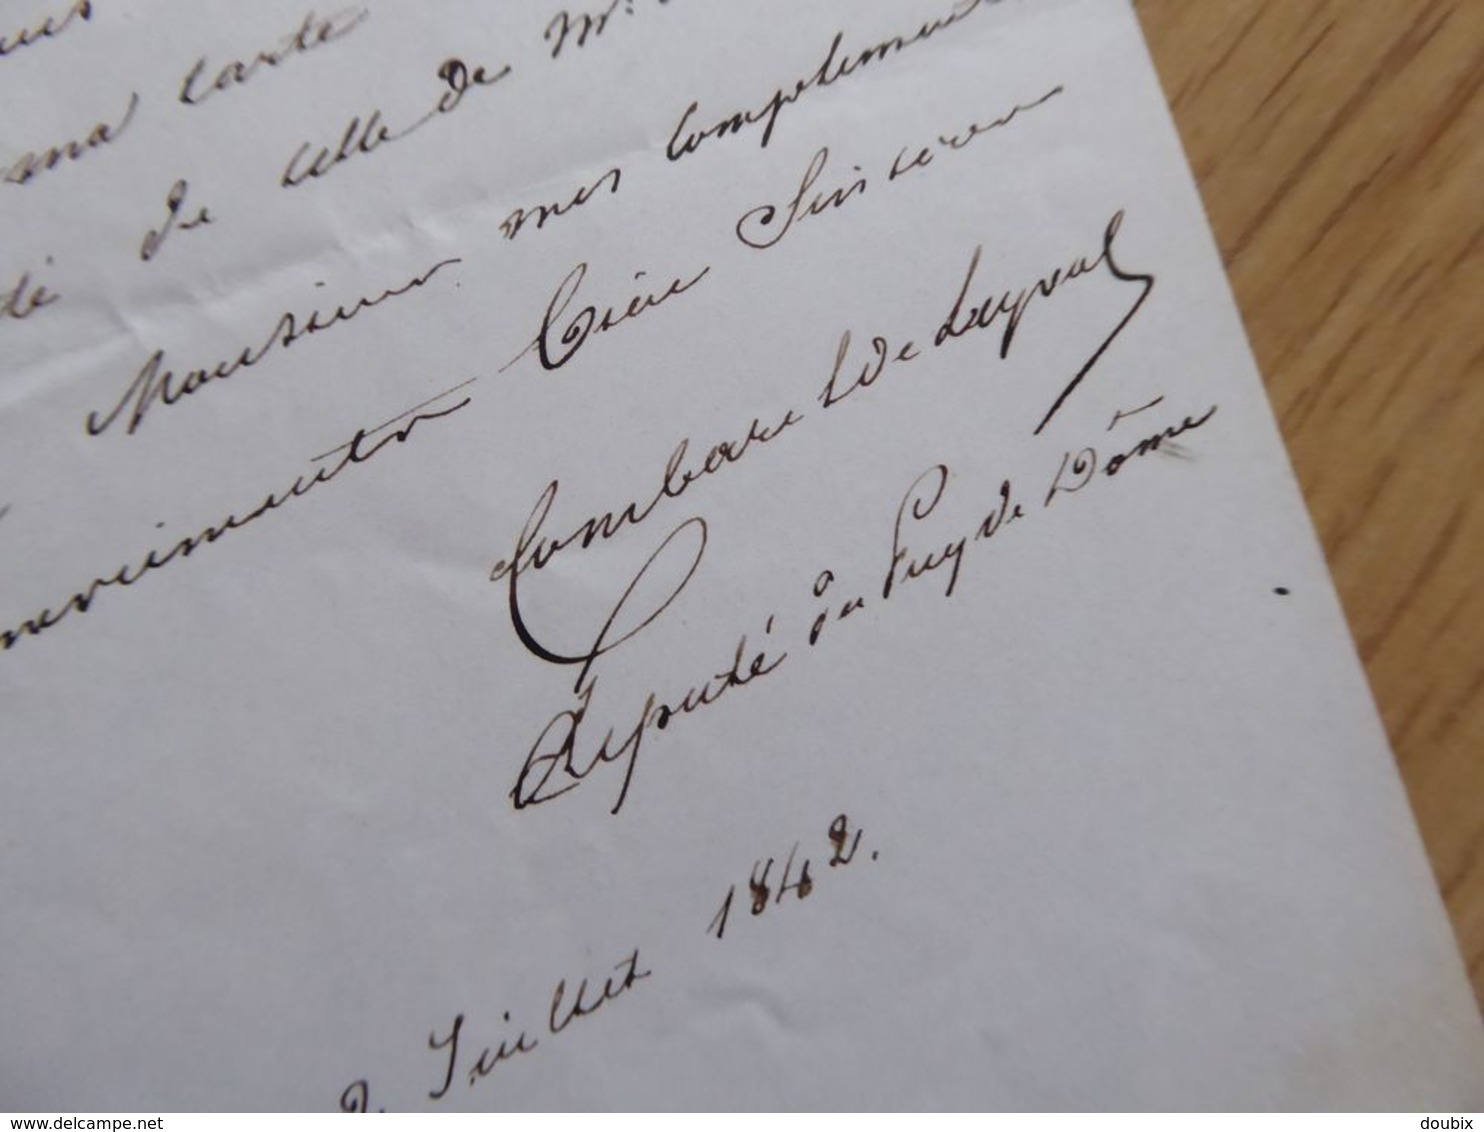 ma carte
de celle de Mr.
Monsieur mes complements
Très Sincères
Combarel de Leyval
Député du Puy de Dôme
2. Juillet 1842.
delcampe.net
doubix